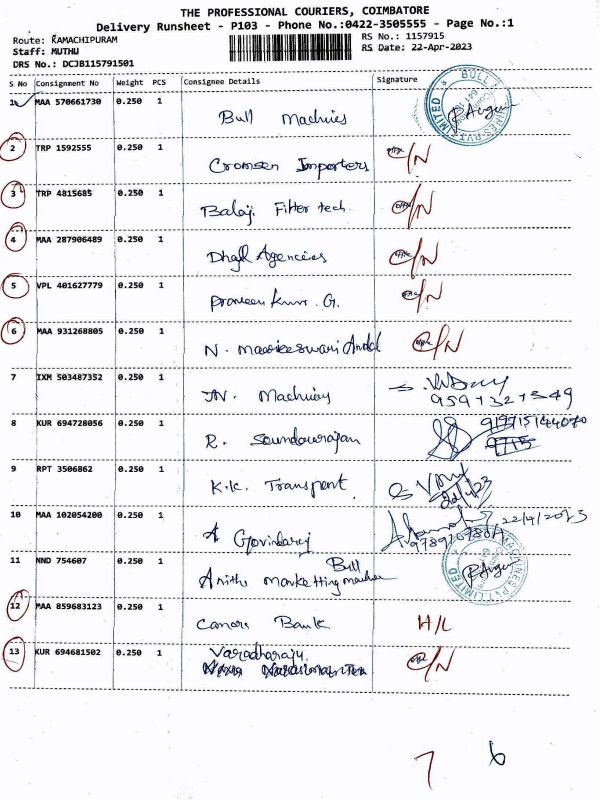 THE PROFESSIONAL COURIERS, COIMBATORE
Delivery Runsheet - P103 - Phone No.:0422-3505555 - Page No.:1
Route: RAMACHIPURAM
Staff: MUTHU
DRS No.: DCJB115791501
RS No.: 1157915
RS Date: 22-Apr-2023
S No Consignment No Weight PCS Consignee Details Signature
1 MAA 570661730 0.250 1 Bull Machines
2 TRP 1592555 0.250 1 Cromsen Importers C/N
3 TRP 4815685 0.250 1 Balaji Filter tech. C/N
4 MAA 287906489 0.250 1 Dhajl Agencies C/N
5 VPL 401627779 0.250 1 Praveen Kumr. G. C/N
6 MAA 931268805 0.250 1 N. C/N
7 IXM 503487352 0.250 1 Machines
8 KUR 694728056 0.250 1 R. Soundarrajan
9 RPT 3506862 0.250 1 K.K. Transport 22/4/23
10 MAA 102054200 0.250 1 A Govindaraj 22/4/2023
11 NND 754607 0.250 1 Anitha Marketting Bull Machine
12 MAA 859683123 0.250 1 Canara Bank H/L
13 KUR 694681502 0.250 1 Varadharaju C/N
7 6